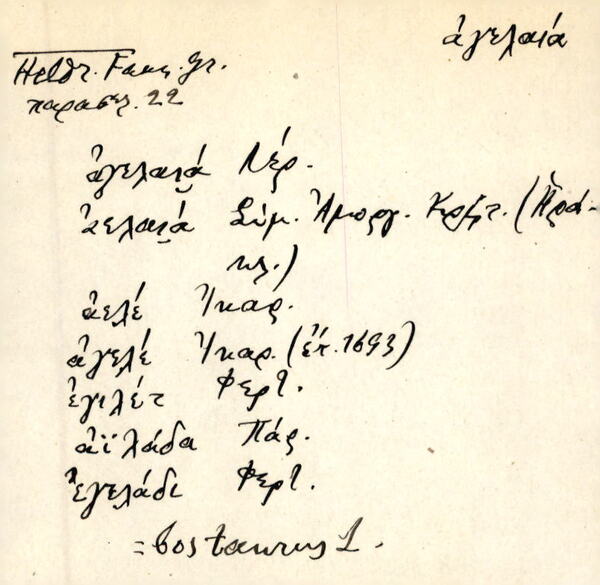 ἀγελαιά
Heldr. Faun. Gr.
παρασημ. 22
ἀγελαιά Λέρ.
ἀελαιά Σύμ. Ἀμοργ. Κρήτ. (Ἡρά-
κλ.)
ἀελέ Ἰκαρ.
ἀγελέ Ἰκαρ. (ἔτ. 1693)
ἐγιλέτ Φερτ.
ἀϊλάδα Πάρ.
ἐγελάδι Φερτ.
= bos taurus L.